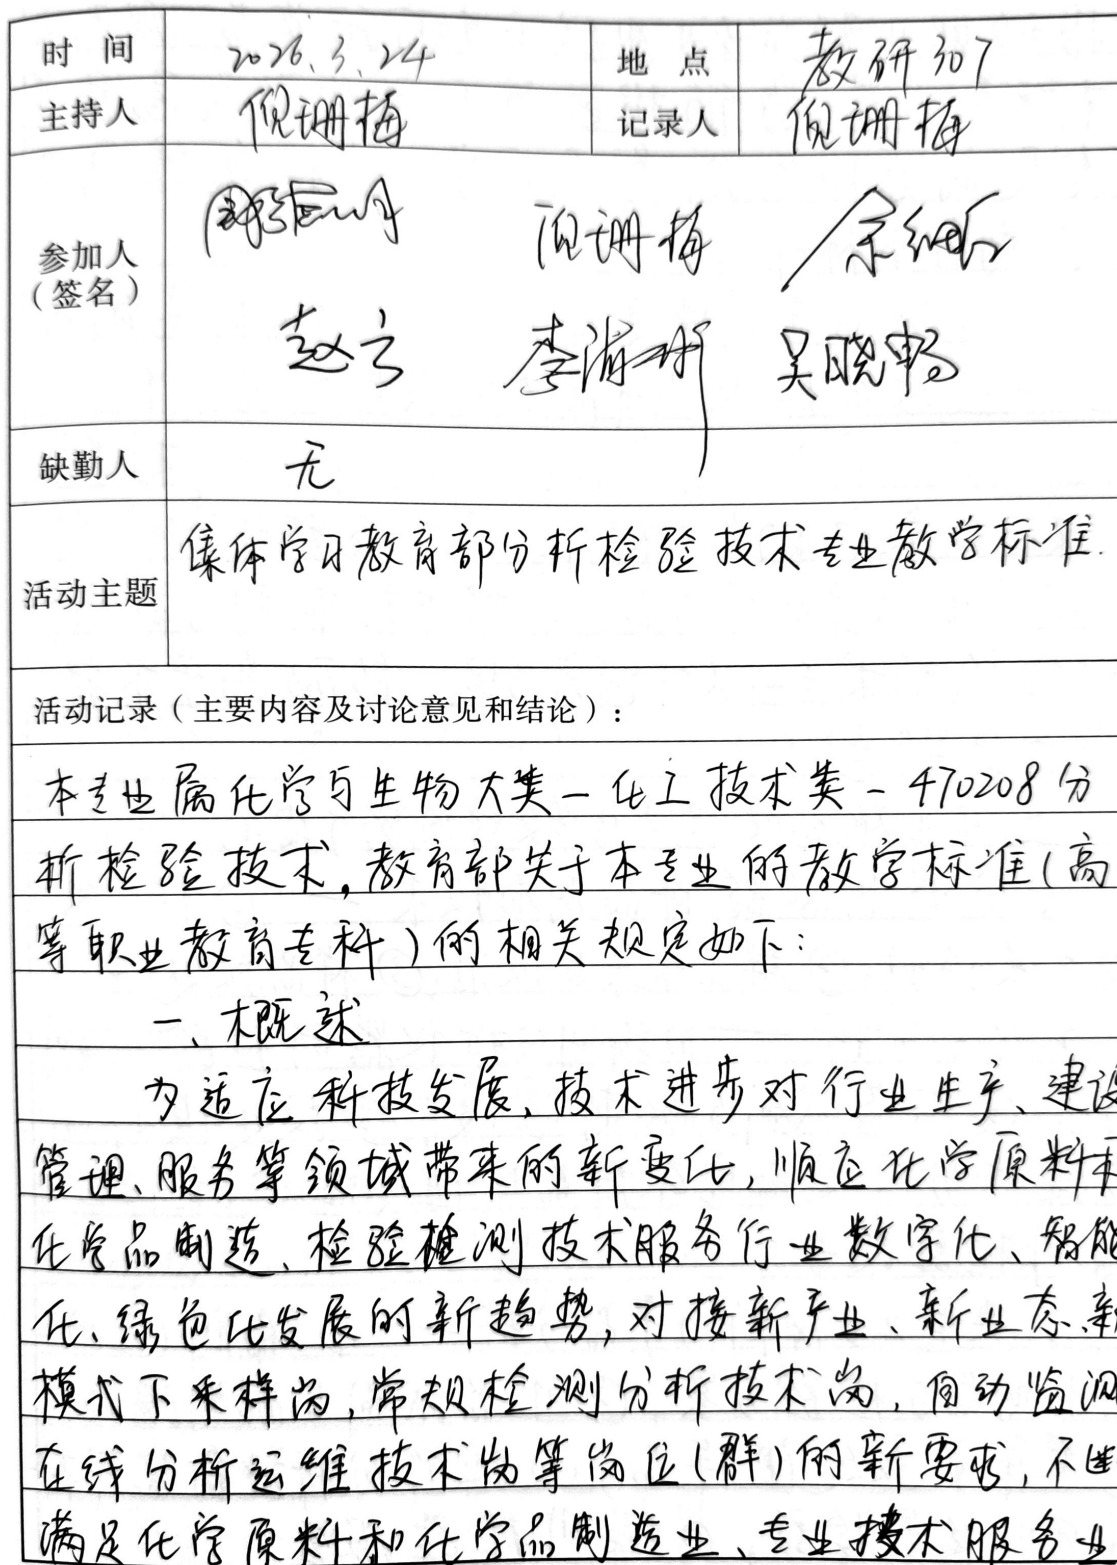 时 间 2026.3.24 地 点 教研307
主持人 倪珊梅 记录人 倪珊梅
参加人
（签名）
倪珊梅
赵云 吴晓畅
缺勤人 无
活动主题 集体学习教育部分析检验技术专业教学标准.
活动记录（主要内容及讨论意见和结论）：
本专业属化学与生物大类－化工技术类－470208分
析检验技术，教育部关于本专业的教学标准(高
等职业教育专科)的相关规定如下：
一、概述
为适应科技发展、技术进步对行业生产、建设
管理、服务等领域带来的新变化，顺应化学原料和
化学品制造、检验检测技术服务行业数字化、智能
化、绿色化发展的新趋势，对接新产业、新业态、新
模式下采样岗，常规检测分析技术岗，自动监测
在线分析运维技术岗等岗位(群)的新要求，不断
满足化学原料和化学品制造业、专业技术服务业